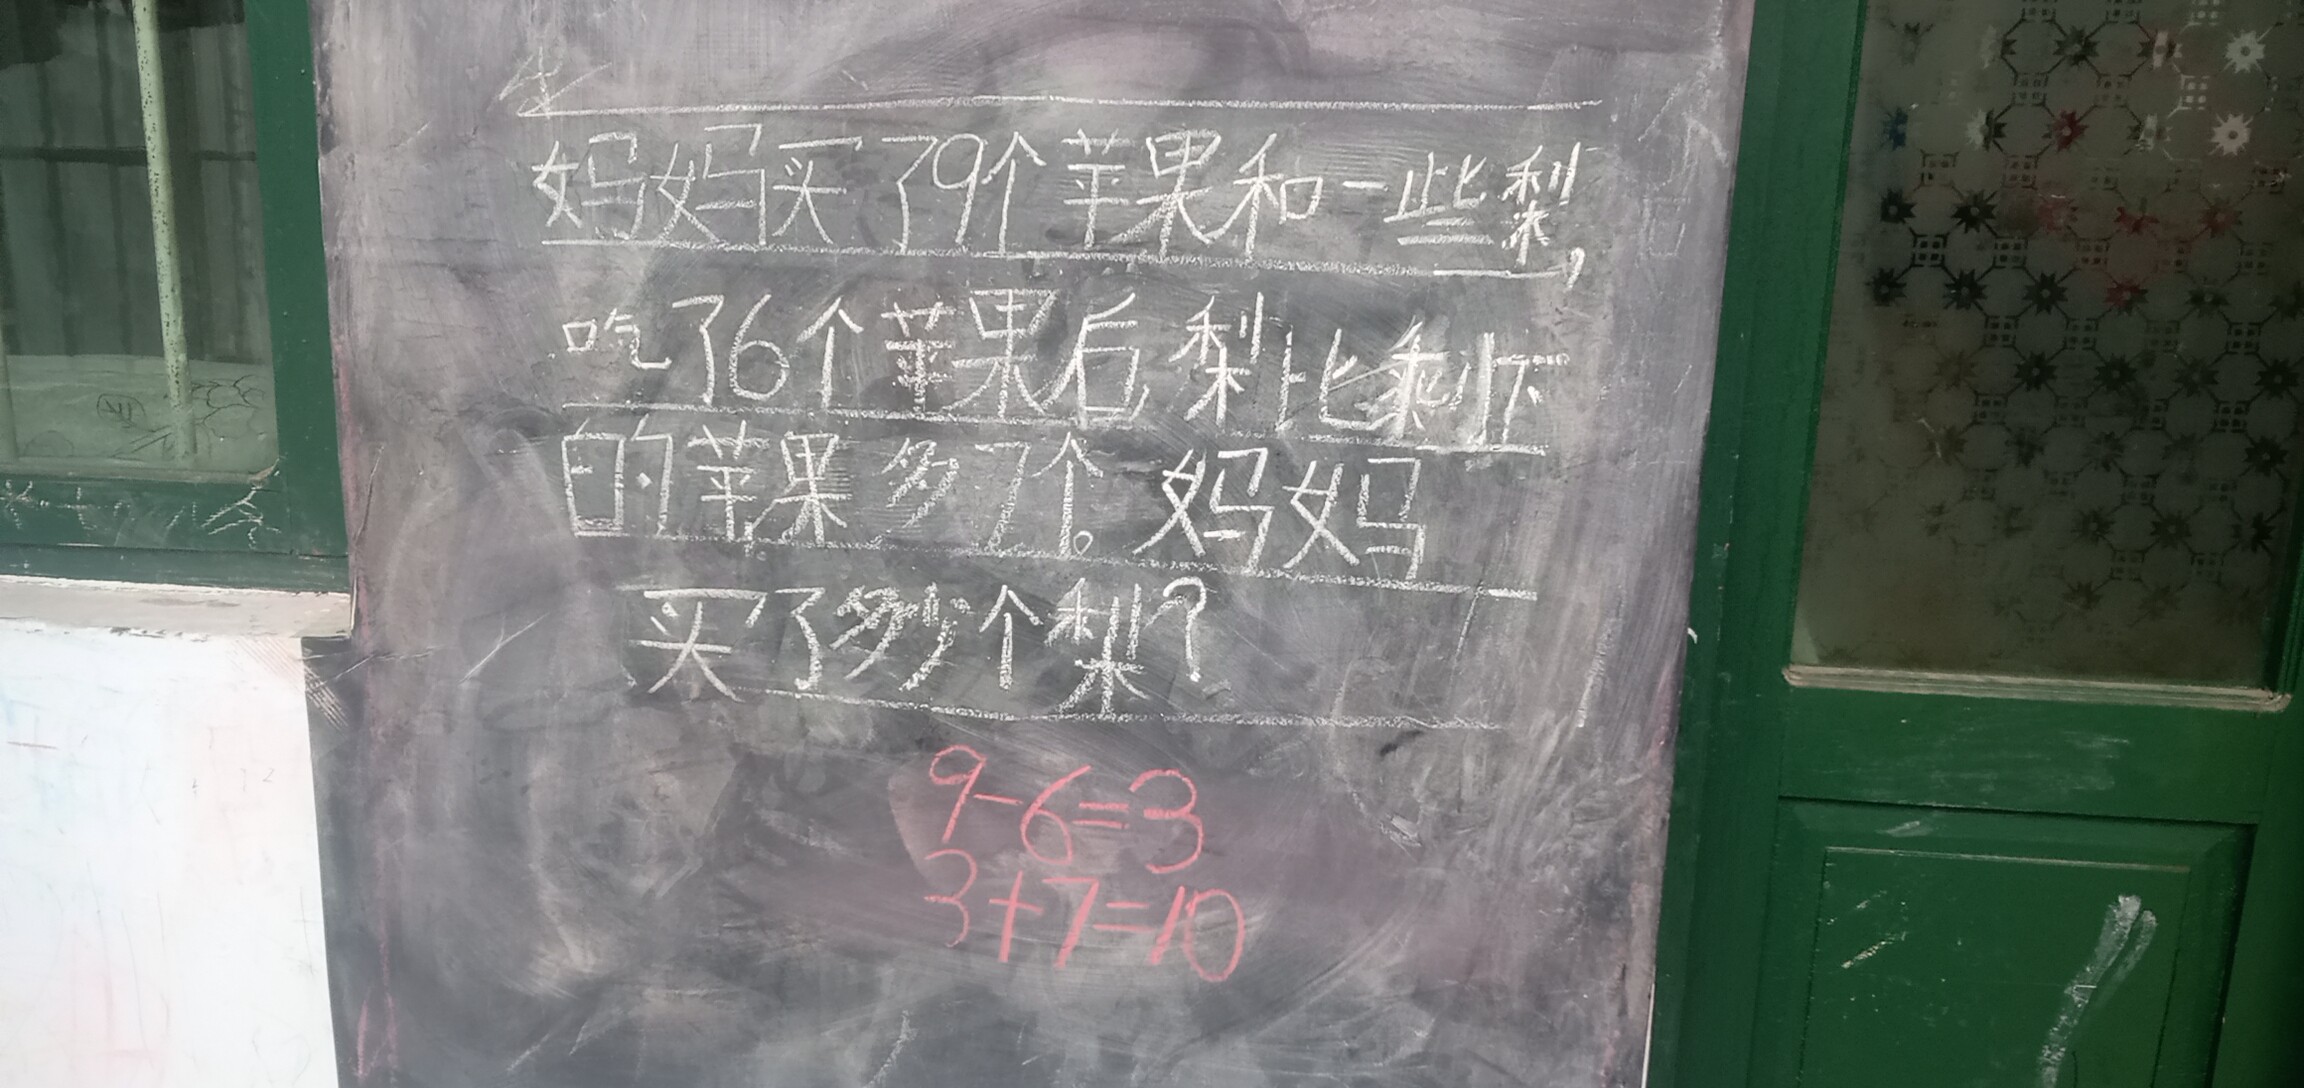 妈妈买了9个苹果和一些梨,
吃了6个苹果后,梨比剩下
的苹果多7个。妈妈
买了多少个梨?
9-6=3
3+7=10